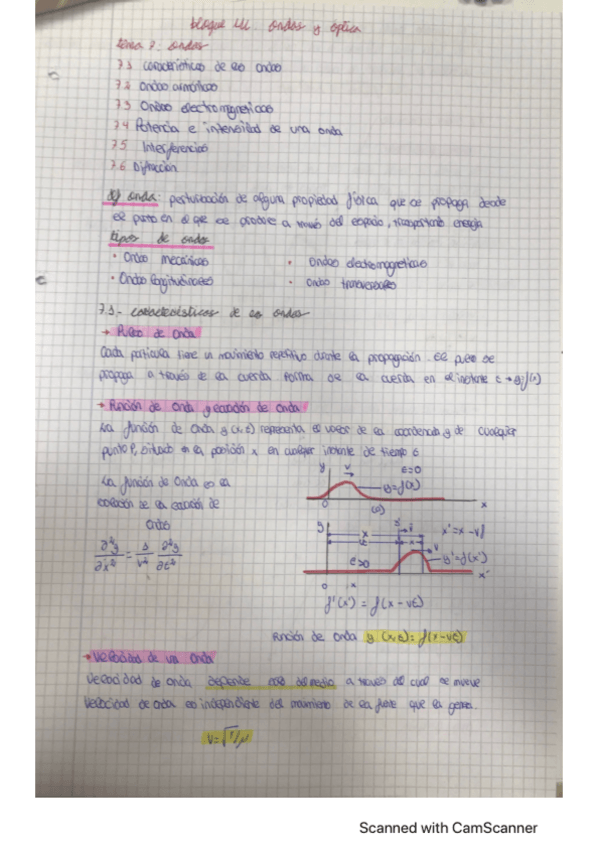 bloque III. ondas y óptica
tema 7: ondas
7.1 características de las ondas
7.2 Ondas armónicas
7.3 Ondas electromagnéticas
7.4 Potencia e intensidad de una onda
7.5 Interferencias
7.6 Difracción
onda: perturbación de alguna propiedad física que se propaga desde
el punto en el que se produce a través del espacio, transportando energía
tipos de ondas
• Ondas mecánicas • Ondas electromagnéticas
• Ondas longitudinales • Ondas transversales
7.1- características de las ondas
→ Pulso de Onda
Cada partícula tiene un movimiento repetitivo durante la propagación. El pulso se
propaga a través de la cuerda forma de la cuerda en el instante t → y=f(x)
→ Función de Onda y ecuación de Onda
La función de Onda y(x,t) representa el valor de la coordenada y de cualquier
punto P, situado en la posición x en cualquier instante de tiempo t
y v t=0
La función de Onda es la y=f(x)
solución de la ecuación de 0 x
Ondas (a)
∂²y/∂x² = 1/v² ∂²y/∂t²
y y' x x'=x-vt
t>0 v y'=f(x')
0 x x'
f'(x') = f(x-vt)
Función de Onda y (x,t)= f(x-vt)
→ Velocidad de una Onda
Velocidad de Onda depende del medio a través del cual se mueve
Velocidad de Onda es independiente del movimiento de la fuente que la genera.
v=√T/μ
Scanned with CamScanner